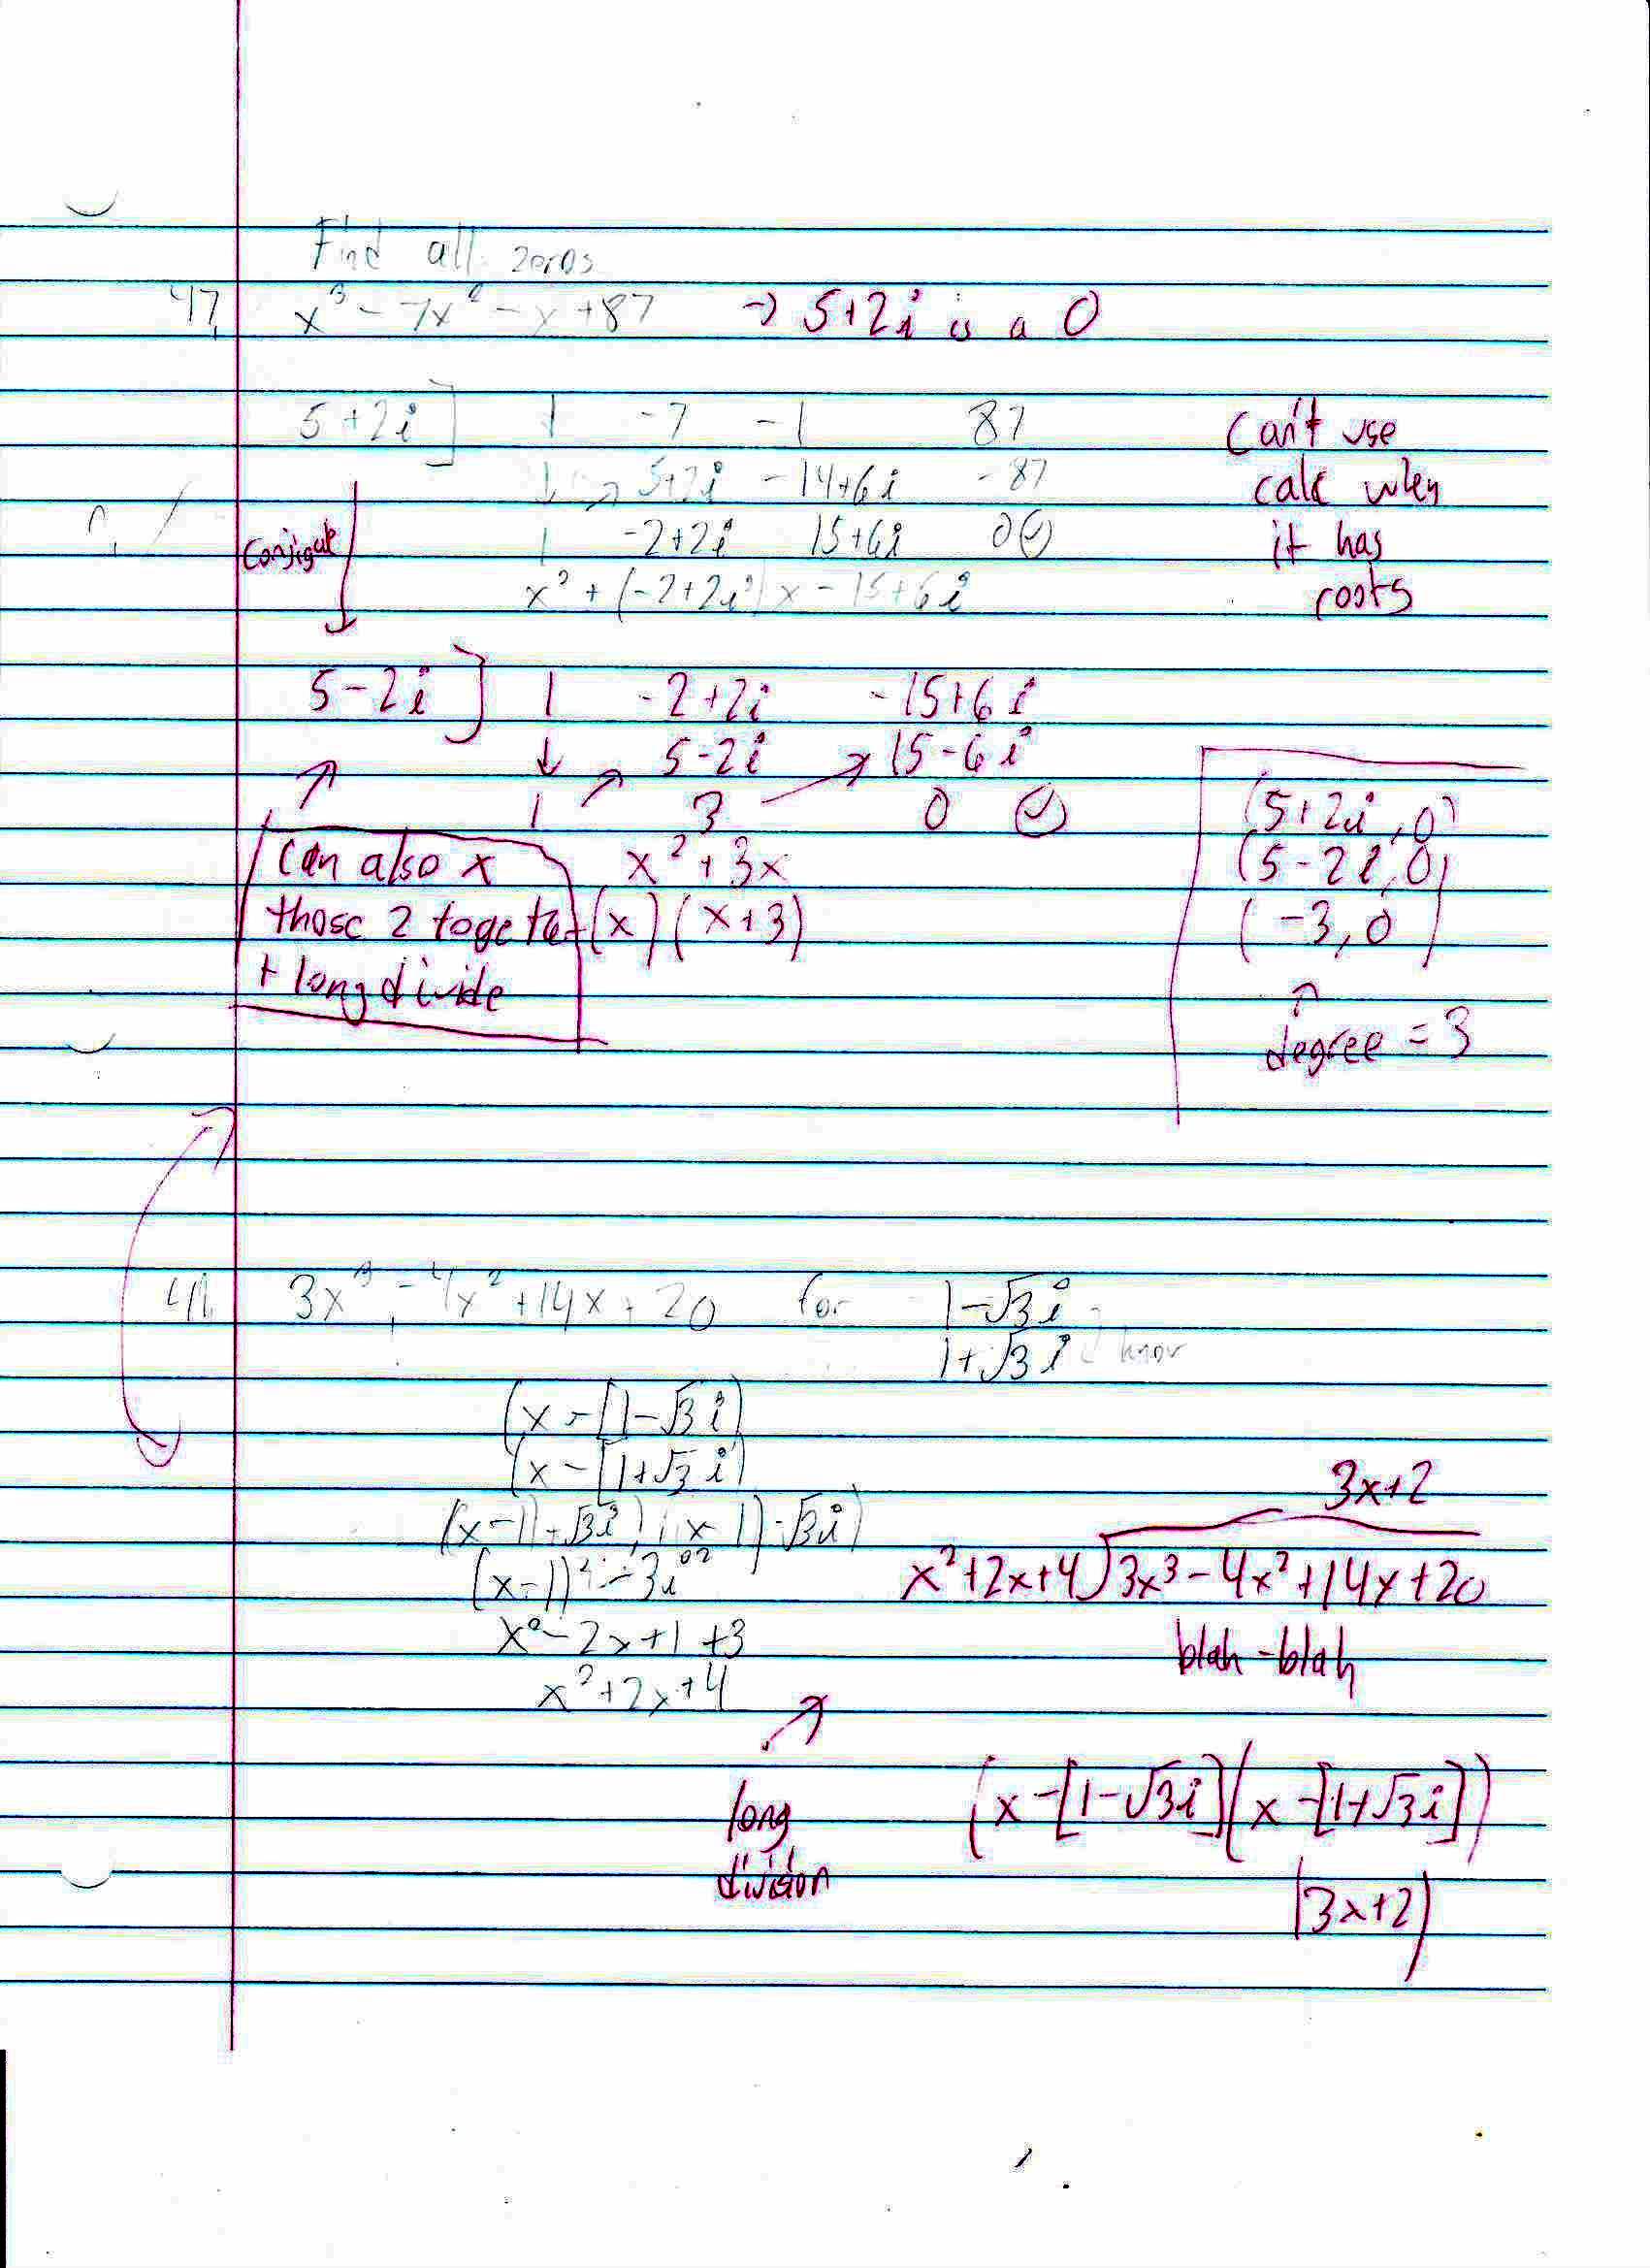 Find all zeros
47. x³ - 7x² - x + 87 → 5+2i is a 0
5+2i] 1 -7 -1 87
↓ ↗ 5+2i -14+6i -87
1 -2+2i 15+6i 0
x² + (-2+2i)x - 15+6i
Can't use
calc when
it has
roots
Conjigate
5-2i] 1 -2+2i -15+6i
↓ 5-2i 15-6i
1 3 0
x² + 3x
(x)(x+3)
Can also x
those 2 together
+ long divide
(5+2i, 0)
(5-2i, 0)
(-3, 0)
↑
degree = 3
3x³ - 4x² + 14x + 20 for 1-√3i
1+√3i know
(x-[1-√3i)
(x-[1+√3i)
(x-1)+√3i)(x-1)-√3i)
(x-1)² - 3i²
x² - 2x + 1 + 3
x² + 2x + 4
long
division
3x+2
x²+2x+4)3x³-4x²+14x+20
blah-blah
(x-[1-√3i](x-[1+√3i])
(3x+2)